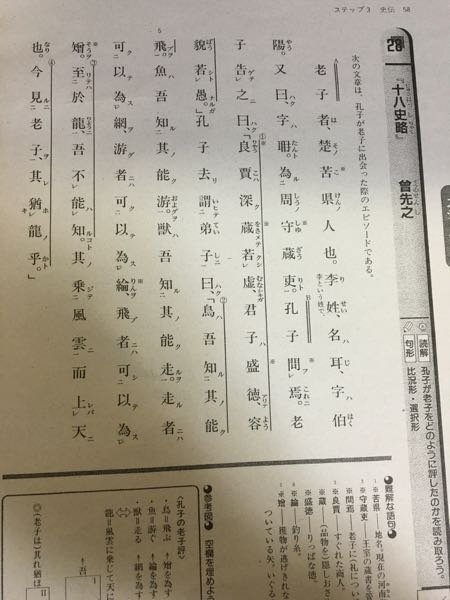 ステップ3 史伝 58
28
『十八史略』 曾先之
読解 孔子が老子をどのように評したのかを読み取ろう。
句形 比況形・選択形
次の文章は、孔子が老子に出会った際のエピソードである。
老子者、楚苦県人也。李姓、名耳、字伯
陽。又曰、字耼。為周守蔵吏。孔子問焉。老
子告之曰、「良賈深蔵若虚、君子盛徳、容
貌若愚。」孔子去謂弟子曰、「鳥吾知其能
飛。魚吾知其能游。獣吾知其能走。走者
可以為網、游者可以為綸、飛者可以為
矰。至於龍、吾不能知。其乗風雲而上天
也。今見老子、其猶龍乎。」
●難解な語句●
※苦県―地名。現在の河南
※守蔵吏―王室の蔵書を管
※問焉―老子に〈礼につい
※良賈―すぐれた商人。
※蔵―(品物を)隠しおさ
※盛徳―りっぱな徳。
※綸―釣り糸。
※矰―獲物が逃げきれな
ついている矢。いぐる
●参考図● 空欄を埋めよう
〈孔子の老子評〉
・鳥＝飛ぶ→矰を為す
・魚＝游ぐ→綸を為す
・獣＝走る→網を為す
龍＝風雲に乗じて天に
→吾 I
(老子は)其れ猶ほ II